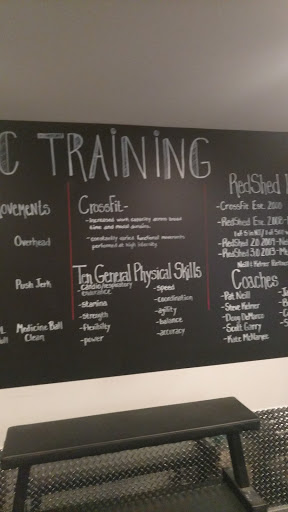 C TRAINING
OVEMENTS
Overhead
Push Jerk
Medicine Ball
Clean
CrossFit-
-Increased work capacity across broad
time and modal domains.
-constantly varied functional movements
performed at high intensity
Ten General Physical Skills
-Cardio/respiratory
endurance
-stamina
-strength
-flexibility
-power
-speed
-coordination
-agility
-balance
-accuracy
RedShed
-CrossFit Est. 2000
-RedShed Est. 2008-
-RedShed 2.0 2009-
-RedShed 3.0 2013-
Coaches
-Pat Neill
-Steve Kelner
-Doug DeMarco
-Scott Garry
-Kate McManges